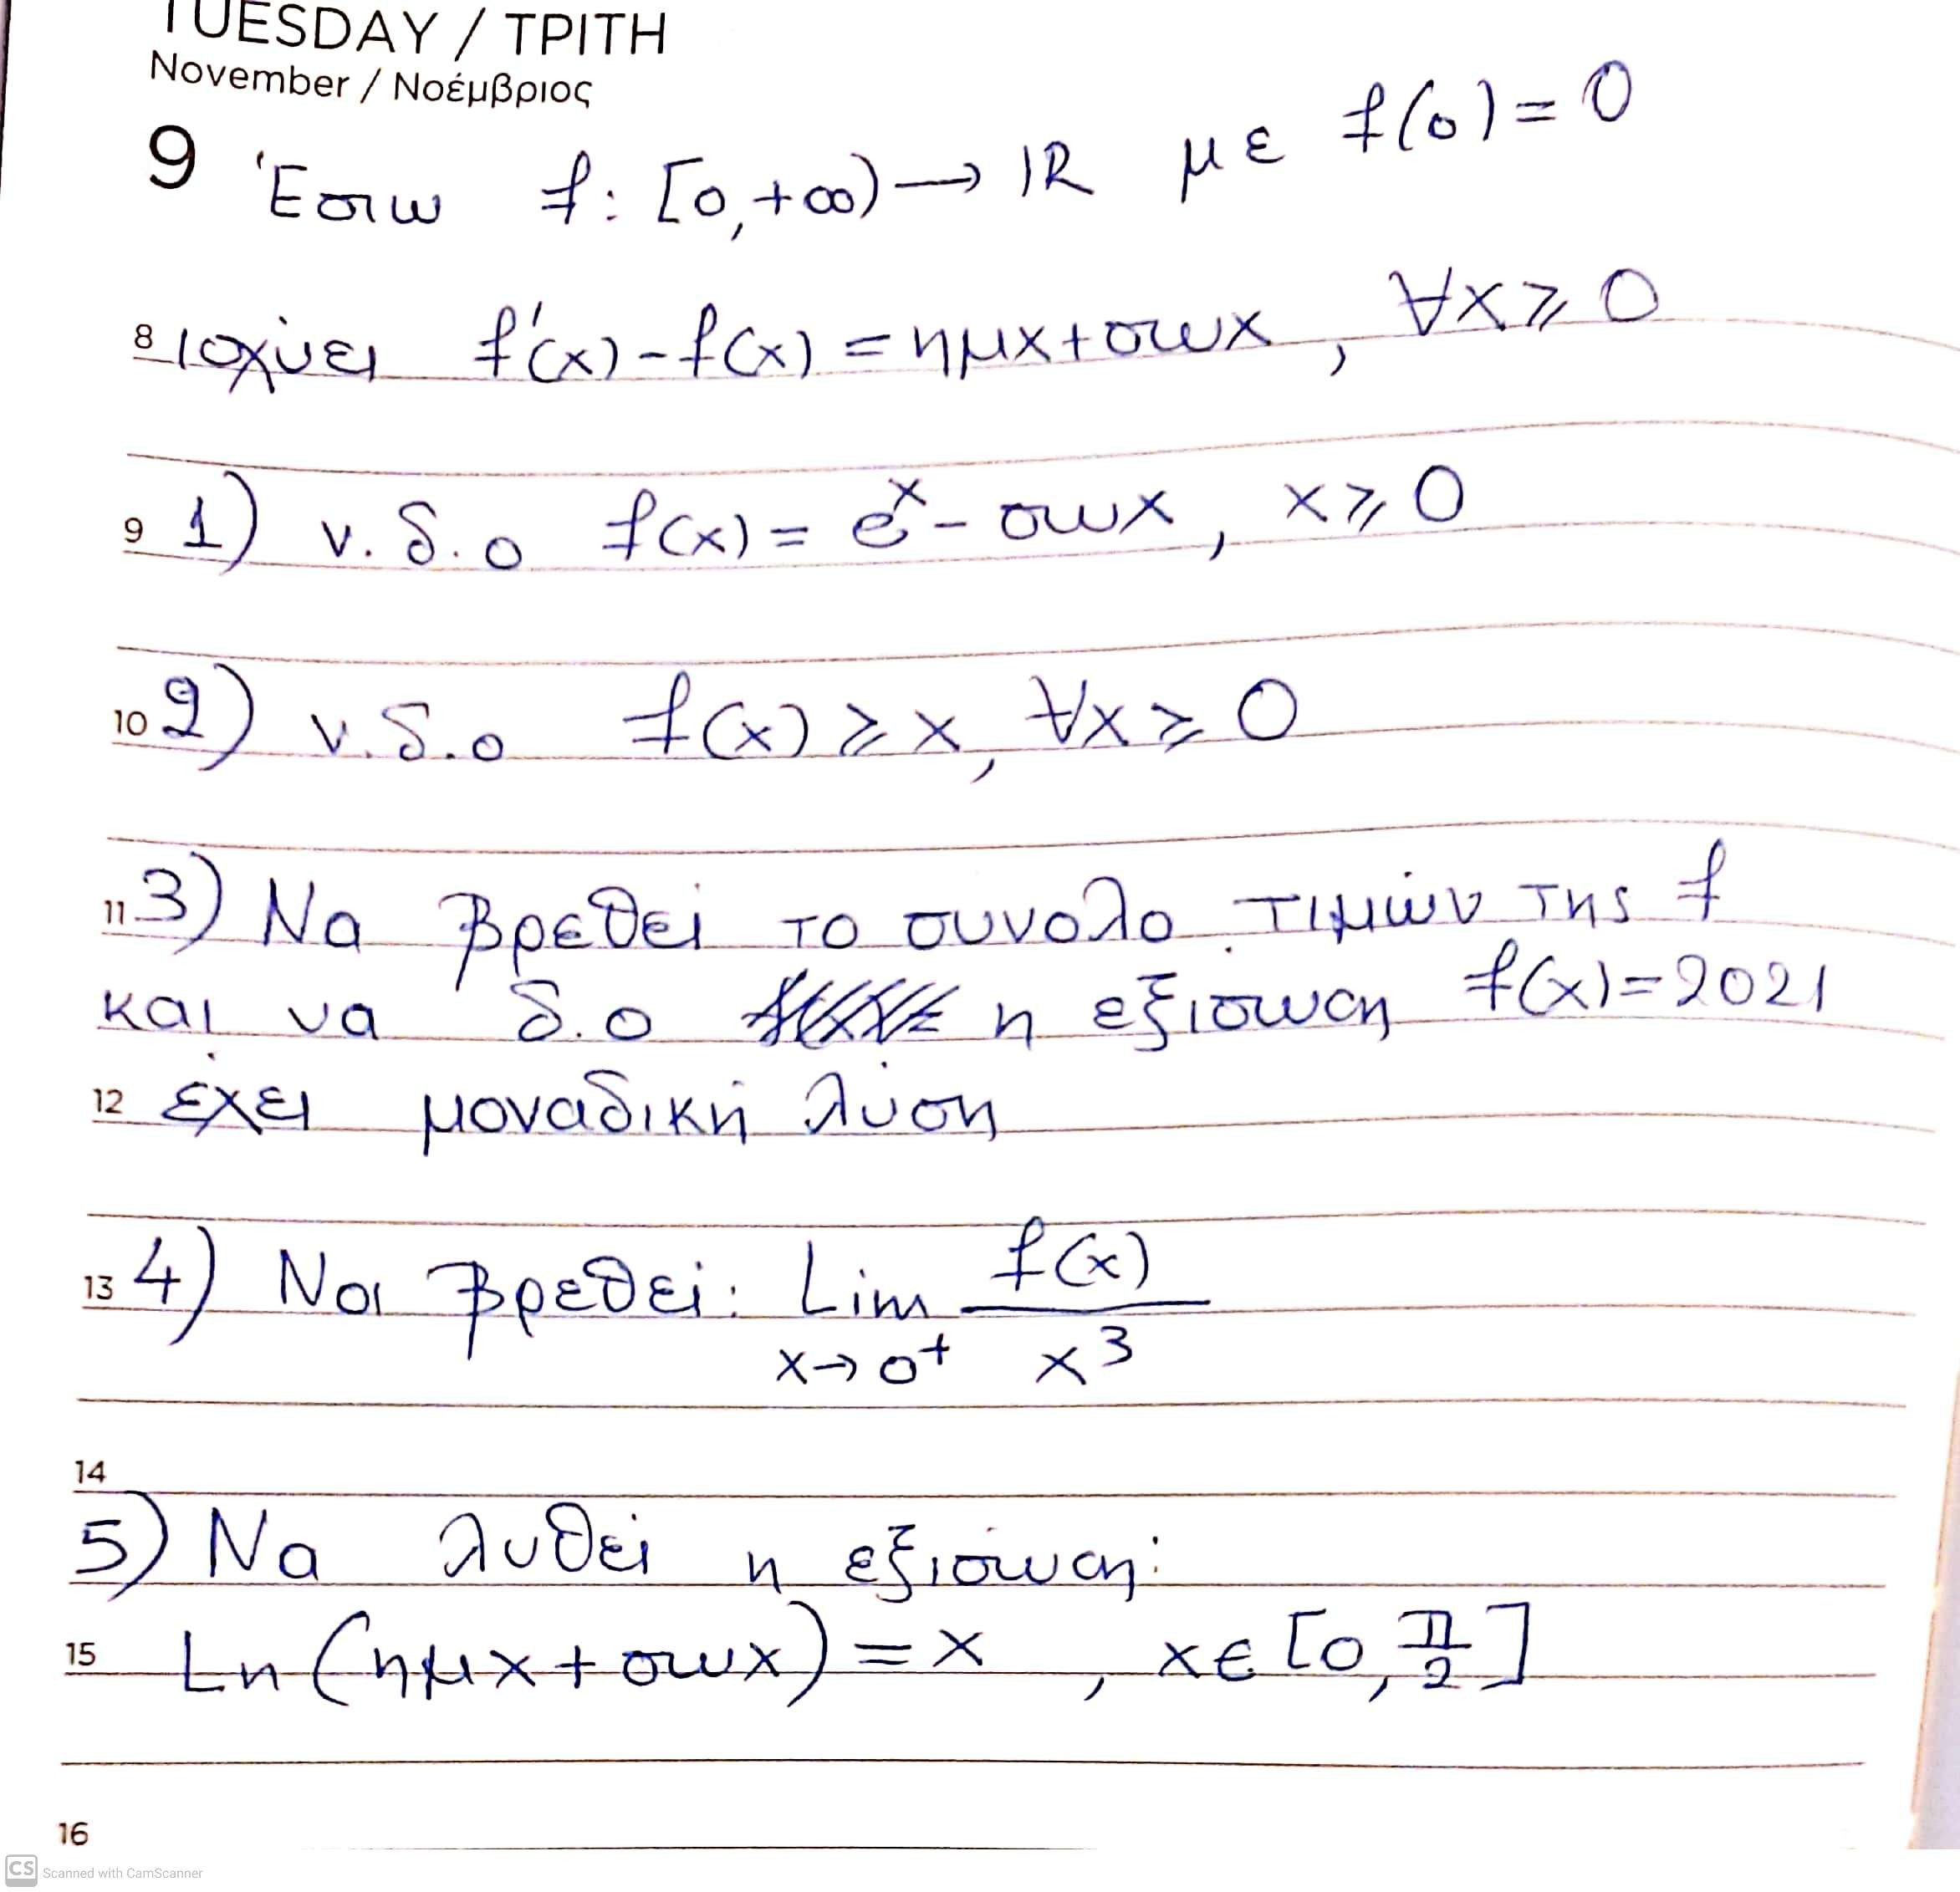 TUESDAY / ΤΡΙΤΗ
November / Νοέμβριος
9 Έστω f: [0,+∞) → ℝ με f(0)=0
8 ισχύει f'(x)-f(x)=ημx+συνx, ∀x⩾0
9 1) ν.δ.ο f(x)=eˣ-συνx, x⩾0
10 2) ν.δ.ο f(x)⩾x, ∀x⩾0
11 3) Να βρεθεί το συνολο τιμών της f
και να δ.ο η εξισωση f(x)=2021
12 έχει μοναδική λύση
13 4) Να βρεθεί: Lim f(x)
x→0⁺ x³
14
5) Να λυθεί η εξίσωση:
15 Ln(ημx+συνx)=x, x∈[0,π/2]
16
CS Scanned with CamScanner